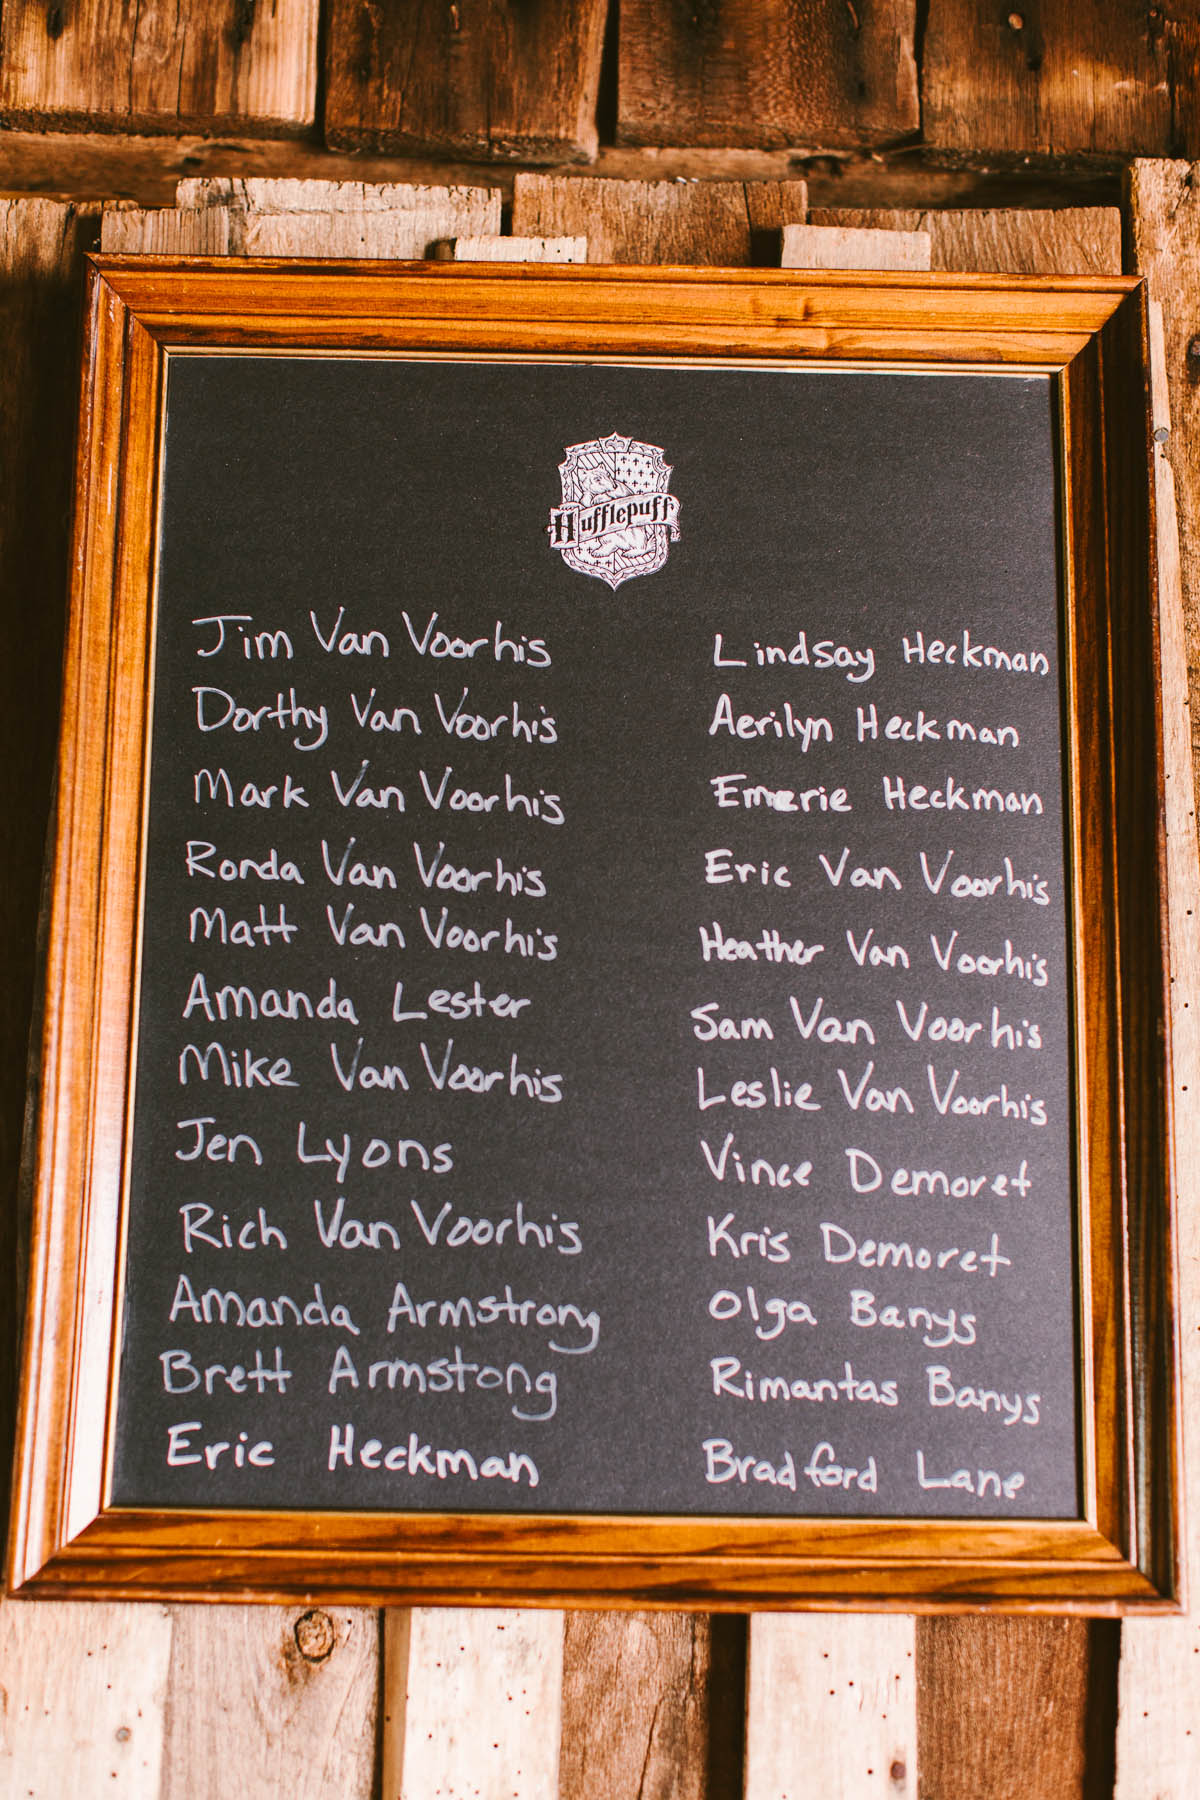 Hufflepuff
Jim Van Voorhis
Dorthy Van Voorhis
Mark Van Voorhis
Ronda Van Voorhis
Matt Van Voorhis
Amanda Lester
Mike Van Voorhis
Jen Lyons
Rich Van Voorhis
Amanda Armstrong
Brett Armstong
Eric Heckman
Lindsay Heckman
Aerilyn Heckman
Emerie Heckman
Eric Van Voorhis
Heather Van Voorhis
Sam Van Voorhis
Leslie Van Voorhis
Vince Demoret
Kris Demoret
Olga Banys
Rimantas Banys
Bradford Lane